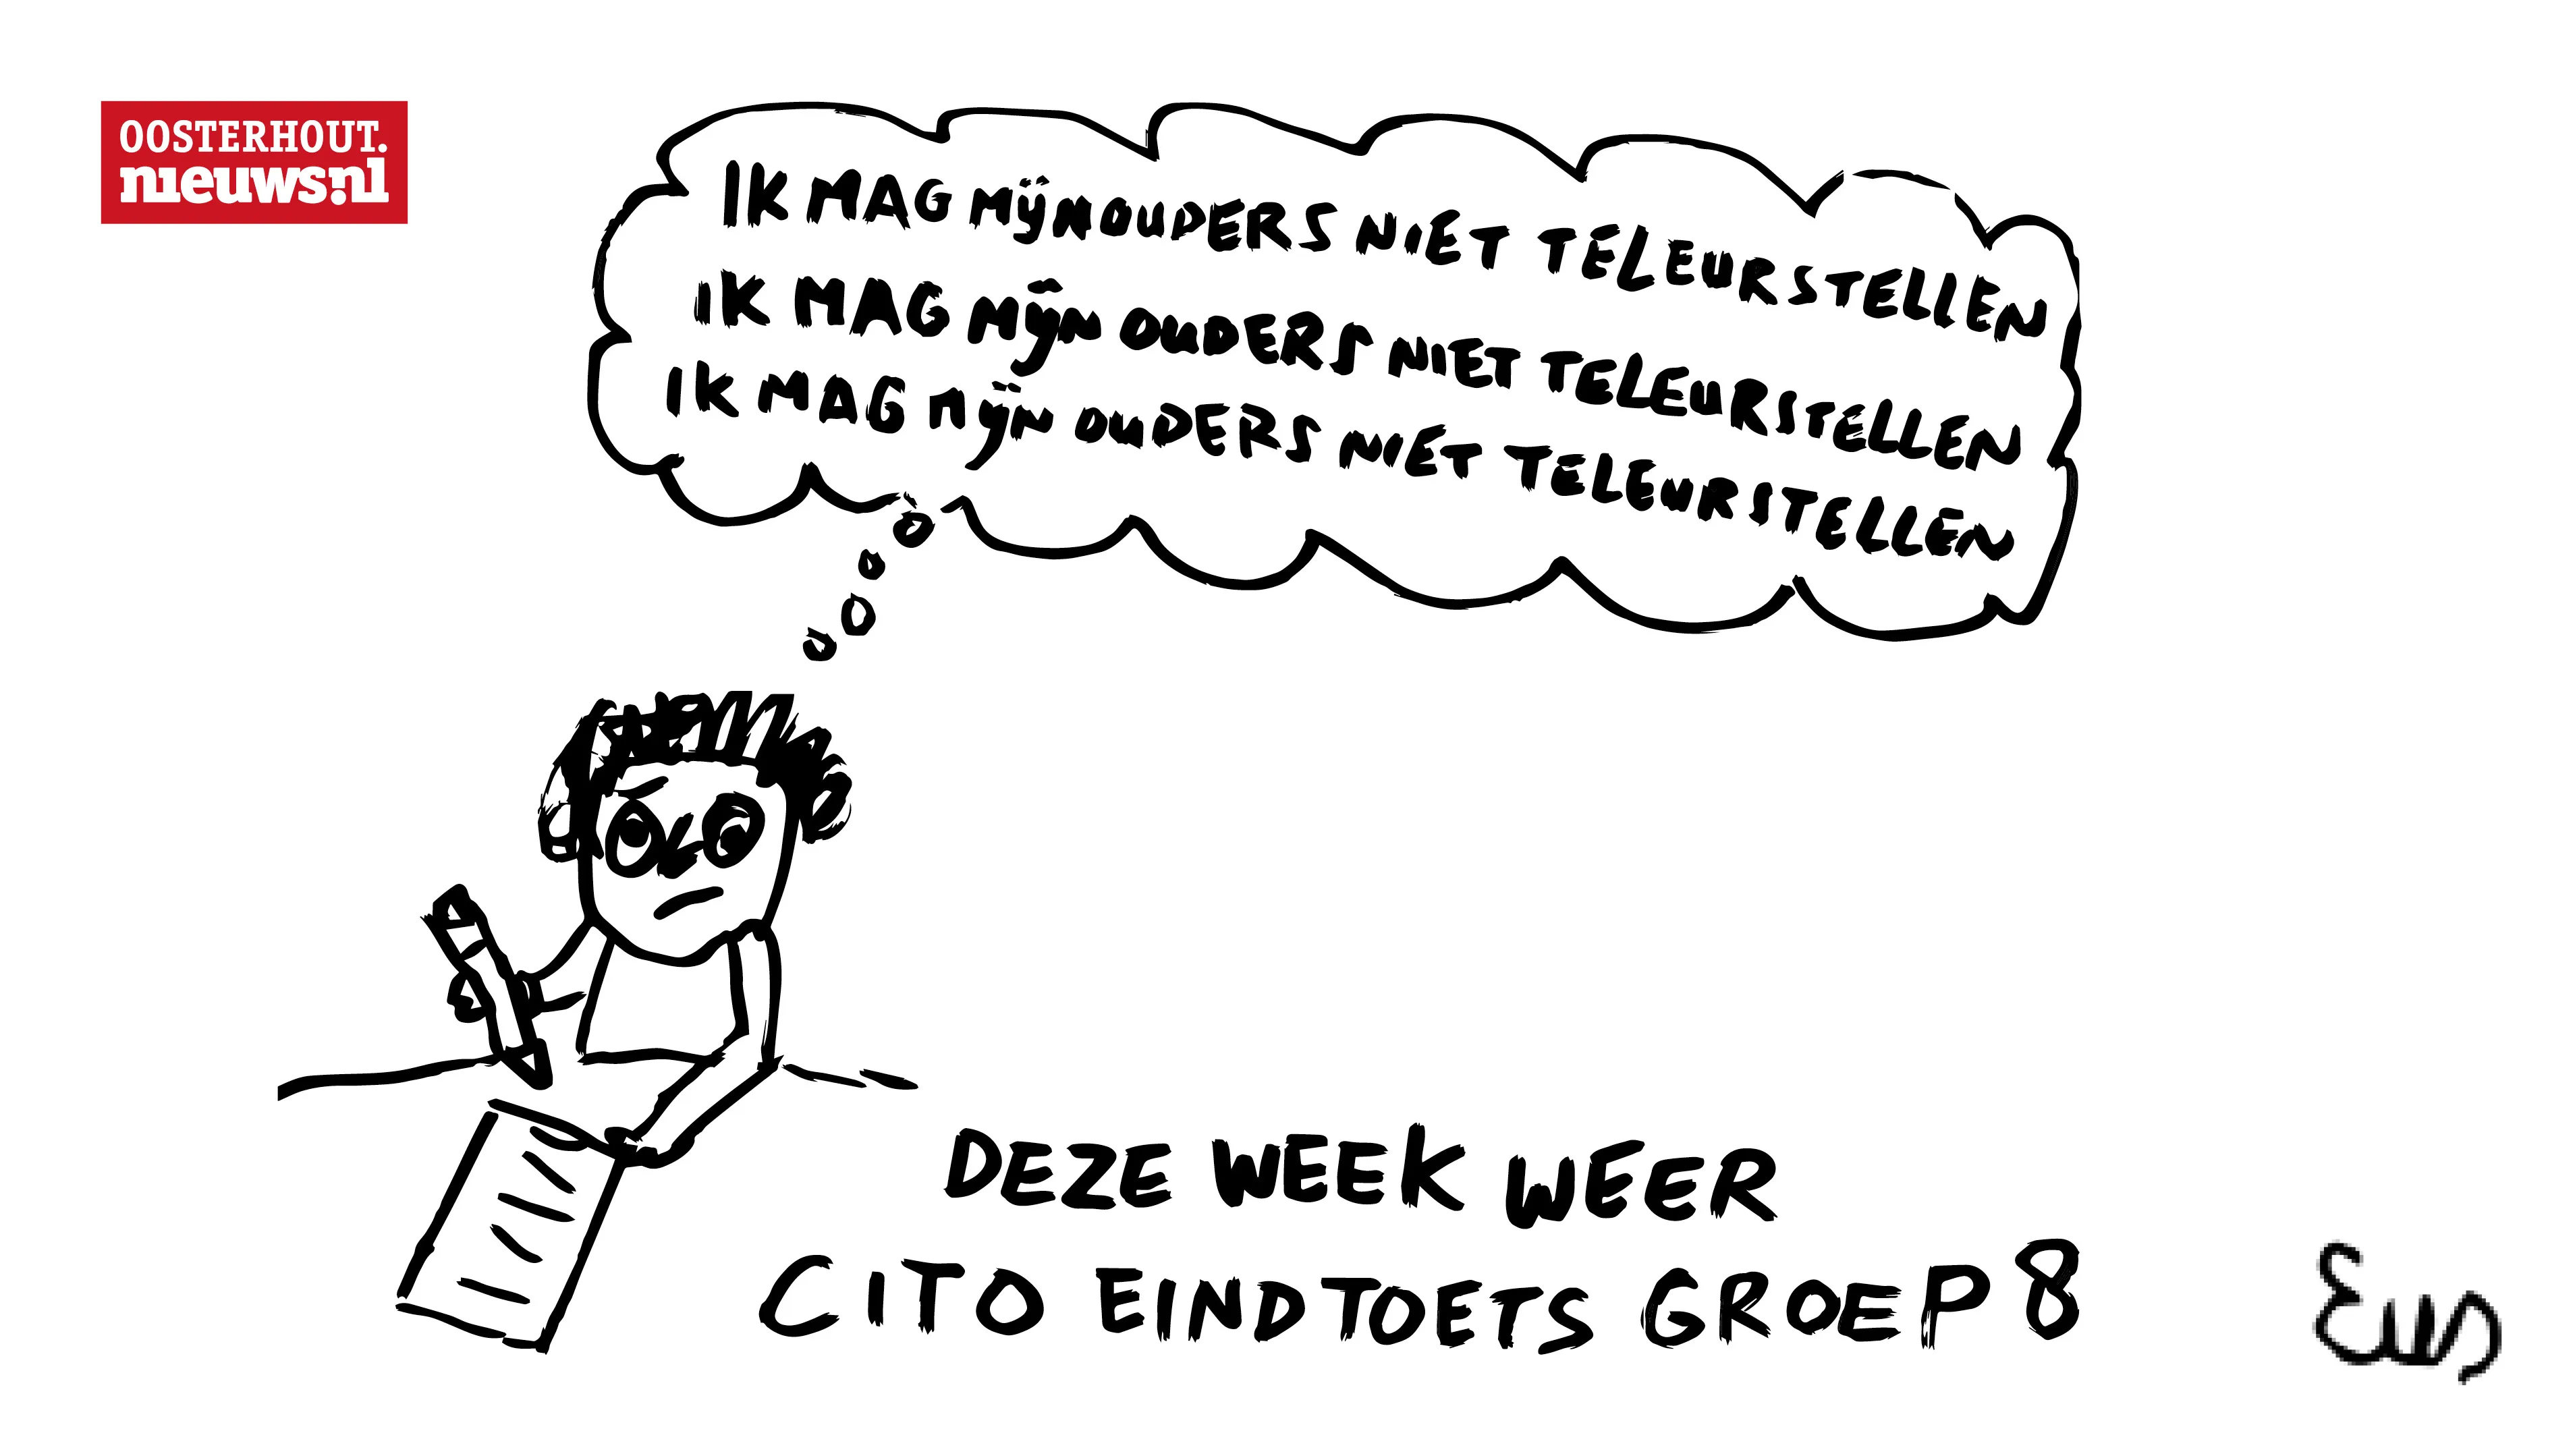 OOSTERHOUT.
nieuws.nl
IK MAG MIJN OUDERS NIET TELEURSTELLEN
IK MAG MIJN OUDERS NIET TELEURSTELLEN
IK MAG MIJN OUDERS NIET TELEURSTELLEN
DEZE WEEK WEER
CITO EINDTOETS GROEP 8
Eus